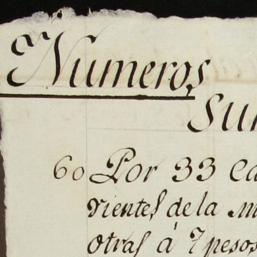 Numeros
60 Por 33
rientes de la
otras á 7 pesos